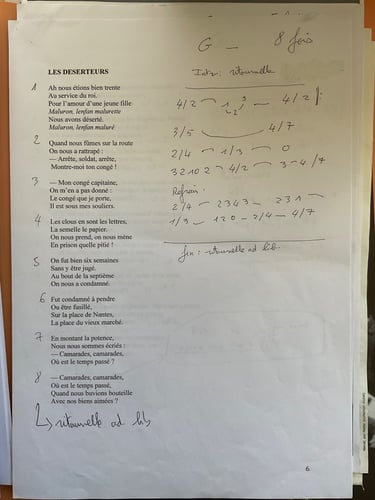 G — 8 fois
LES DESERTEURS
Intro: ritournelle
1 Ah nous étions bien trente
Au service du roi.
Pour l'amour d'une jeune fille
Maluron, lenfan malurette
Nous avons déserté.
Maluron, lenfan maluré
2 Quand nous fûmes sur la route
On nous a rattrapé :
— Arrête, soldat, arrête,
Montre-moi ton congé !
3 — Mon congé capitaine,
On m'en a pas donné :
Le congé que je porte,
Il est sous mes souliers.
4 Les clous en sont les lettres,
La semelle le papier.
On nous prend, on nous mène
En prison quelle pitié !
5 On fut bien six semaines
Sans y être jugé.
Au bout de la septième
On nous a condamné.
6 Fut condamné à pendre
Ou être fusillé,
Sur la place de Nantes,
La place du vieux marché.
7 En montant la potence,
Nous nous sommes écriés :
— Camarades, camarades,
Où est le temps passé ?
8 — Camarades, camarades,
Où est le temps passé,
Quand nous buvions bouteille
Avec nos bien aimées ?
ritournelle ad lib
4/2 1 2 3 — 4/2
3/5 4/7
2/4 — 1/3 — 0
3 2 1 0 2 — 4/2 — 3 — 4/7
Refrain.
2/4 — 2343 — 231
1/3 — 120 — 2/4 — 4/7
fin : ritournelle ad lib.
6.